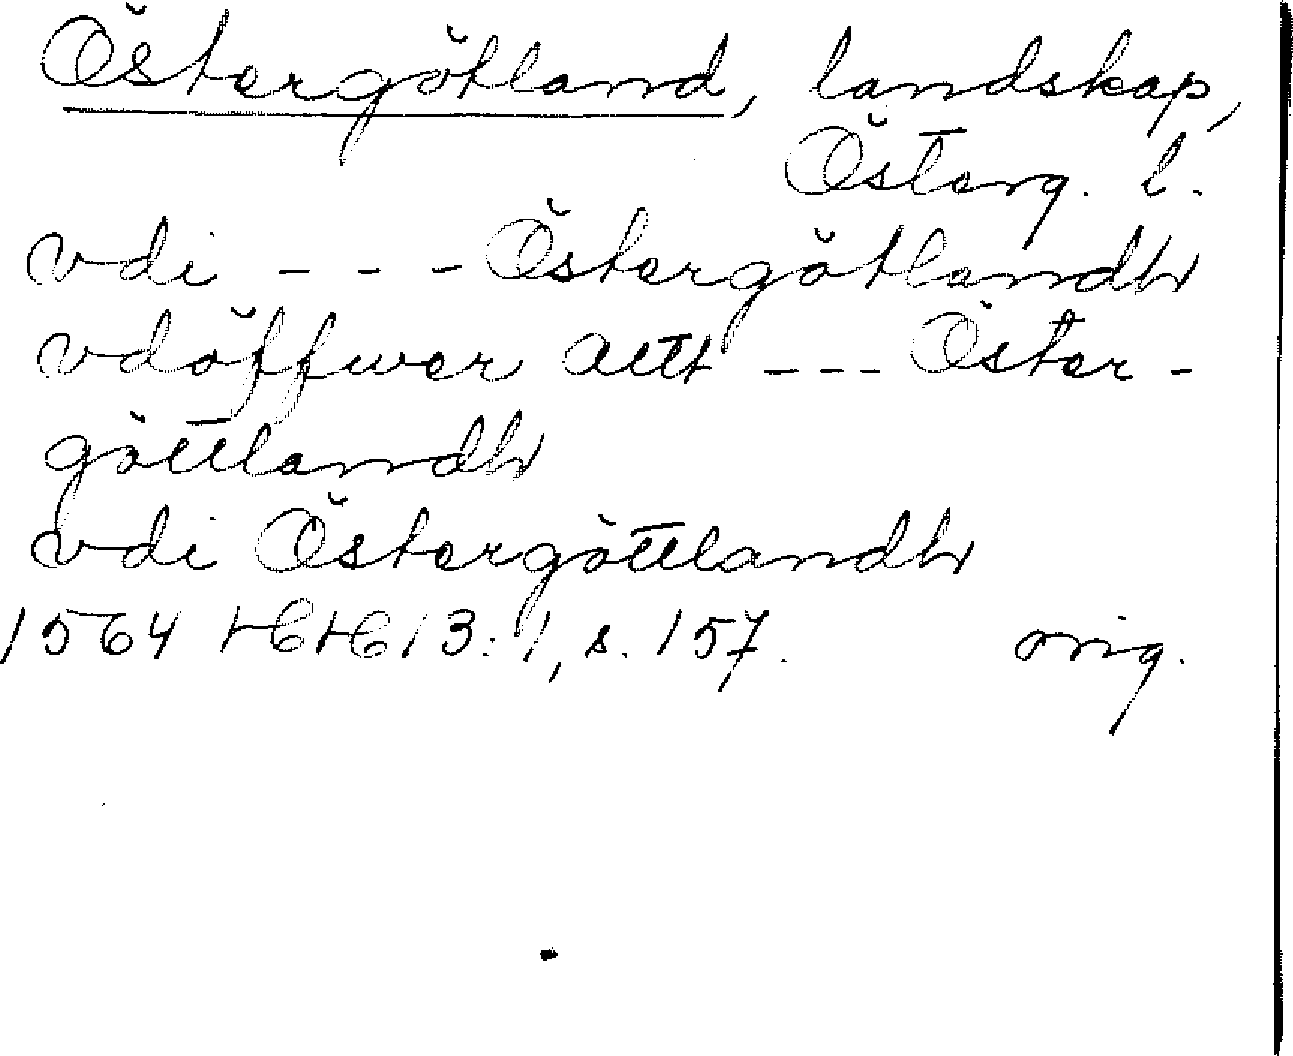 Östergötland, landskap,
Österg. l.
vdi - - - Östergötlandh
vdöffwer allt - - - Öster-
göttlandh
vdi Östergöttlandh
1564 HH 13:1, s. 157. orig.